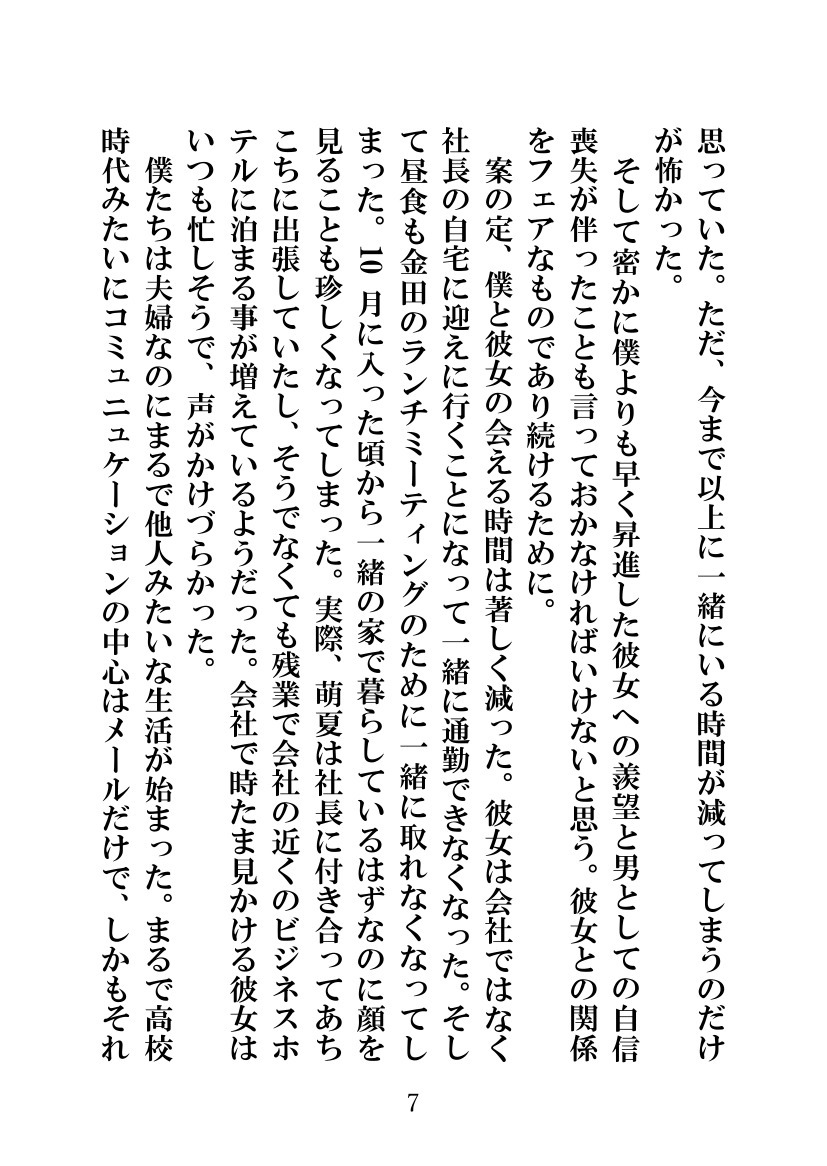 思っていた。ただ、今まで以上に一緒にいる時間が減ってしまうのだけ
が怖かった。
そして密かに僕よりも早く昇進した彼女への羨望と男としての自信
喪失が伴ったことも言っておかなければいけないと思う。彼女との関係
をフェアなものであり続けるために。
案の定、僕と彼女の会える時間は著しく減った。彼女は会社ではなく
社長の自宅に迎えに行くことになって一緒に通勤できなくなった。そし
て昼食も金田のランチミーティングのために一緒に取れなくなってし
まった。10 月に入った頃から一緒の家で暮らしているはずなのに顔を
見ることも珍しくなってしまった。実際、萌夏は社長に付き合ってあち
こちに出張していたし、そうでなくても残業で会社の近くのビジネスホ
テルに泊まる事が増えているようだった。会社で時たま見かける彼女は
いつも忙しそうで、声がかけづらかった。
僕たちは夫婦なのにまるで他人みたいな生活が始まった。まるで高校
時代みたいにコミュニュケーションの中心はメールだけで、しかもそれ
7